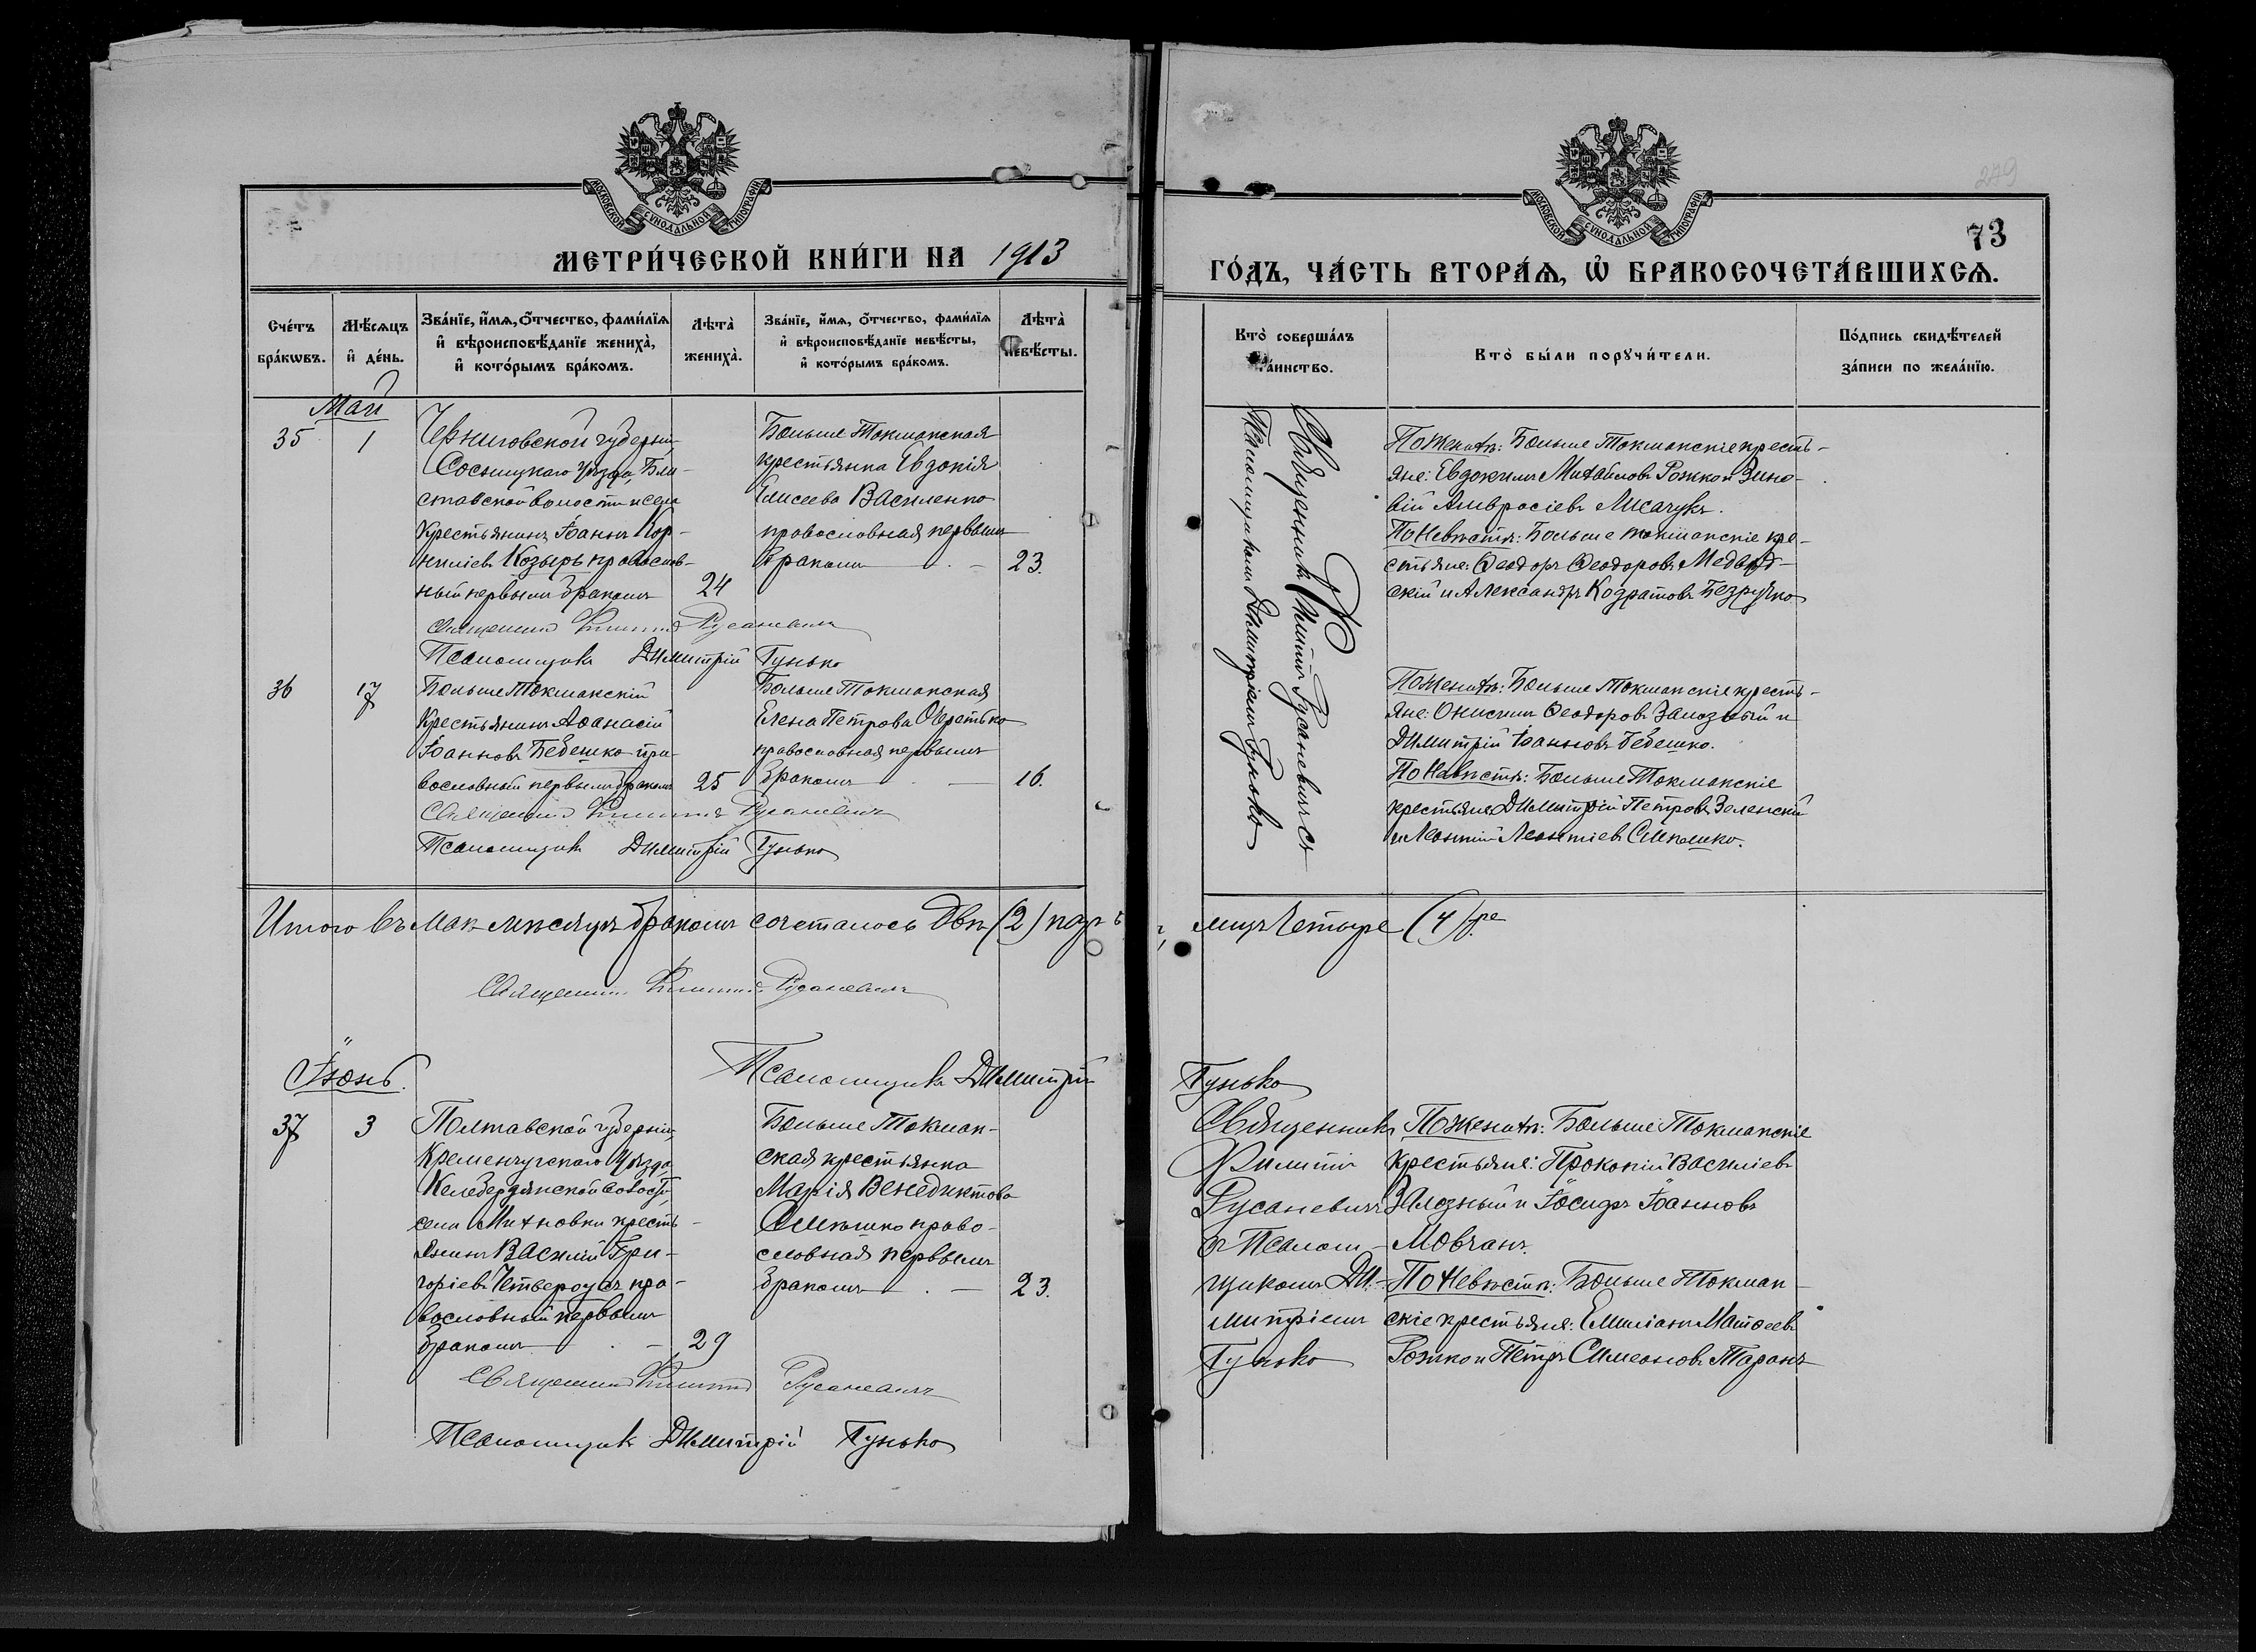 МОСКОВСКОЙ СѴНОДАЛЬНОЙ ТИПОГРАФІИ
МЕТРИ́ЧЕСКОЙ КНИ́ГИ НА 1913
Сче́тъ бра́кѡвъ.
Мѣ́сѧцъ и҆ де́нь.
Зва́нїе, и҆́мѧ, ѻ҆́тчество, фами́лїѧ
и҆ вѣроисповѣ́данїе жениха̀,
и҆ кото́рымъ бра́комъ.
Лѣта̀ жениха̀.
Зва́нїе, и҆́мѧ, ѻ҆́тчество, фами́лїѧ
и҆ вѣроисповѣ́данїе невѣ́сты,
и҆ кото́рымъ бра́комъ.
Лѣта̀ невѣ́сты.
Май
35
1
Черниговской губерніи,
Сосницкаго уѣзда, Бли-
ставской волости и села
крестьянинъ Іоаннъ Кор-
ниліевъ Козырь православ-
ный первымъ бракомъ
24
Больше Токмакская
крестьянка Евдокія
Елисеева Василенко
православная первымъ
бракомъ
23.
Священникъ Филиппъ Русаневичъ
Псаломщикъ Димитрій Гунько
36
17
Больше Токмакскій
крестьянинъ Аѳанасій
Іоанновъ Бебешко пра-
вославный первымъ бракомъ
25
Больше Токмакская
Елена Петрова Очретько
православная первымъ
бракомъ
16.
Священникъ Филиппъ Русаневичъ
Псаломщикъ Димитрій Гунько
Итого въ Маѣ мѣсяцѣ бракомъ сочеталось двѣ (2) пары
Священникъ Филиппъ Русаневичъ
Псаломщикъ Димитрій
Іюнь.
37
3
Полтавской губерніи,
Кременчугскаго уѣзда,
Келебердянской волости,
села Михновки кресть-
янинъ Василій Гри-
горіевъ Четвероусъ пра-
вославный первымъ
бракомъ
29
Больше Токмак-
ская крестьянка
Марія Венедиктова
Симашко право-
славная первымъ
бракомъ
23.
Священникъ Филиппъ Русаневичъ
Псаломщикъ Димитрій Гунько
279
73
МОСКОВСКОЙ СѴНОДАЛЬНОЙ ТИПОГРАФІИ
ГО́ДЪ, ЧА́СТЬ ВТОРА́Ѧ, Ѡ҆ БРАКОСОЧЕТА́ВШИХСѦ.
Кто̀ соверша́лъ
та́инство.
Кто̀ бы́ли порꙋчи́тели.
По́дпись свидѣ́телей
за́писи по жела́нїю.
Священникъ Филиппъ Русаневичъ съ
Псаломщикомъ Димитріемъ Гунько
По женихѣ: Больше Токмакскіе кресть-
яне: Евдокимъ Михайловъ Рожко и Зино-
вій Амвросіевъ Мисачукъ.
По невѣстѣ: Больше Токмакскіе кре-
стьяне: Ѳеодоръ Ѳеодоровъ Медвѣд-
скій и Александръ Кодратовъ Безручко
По женихѣ: Больше Токмакскіе кресть-
яне: Онисимъ Ѳеодоровъ Залозный и
Димитрій Іоанновъ Бебешко.
По невѣстѣ: Больше Токмакскіе
крестьяне Димитрій Петровъ Зеленскій
и Леонтій Леонтіевъ Симашко.
лицъ четыре (4)ре
Гунько
Священникъ
Филиппъ
Русаневичъ
съ Псалом-
щикомъ Ди-
митріемъ
Гунько
По женихѣ: Больше Токмакскіе
крестьяне: Прокопій Василіевъ
Залозный и Іосифъ Іоанновъ
Мовчанъ.
По невѣстѣ: Больше Токмак-
скіе крестьяне: Емиліанъ Матѳеевъ
Рожко и Петръ Симеоновъ Таранъ